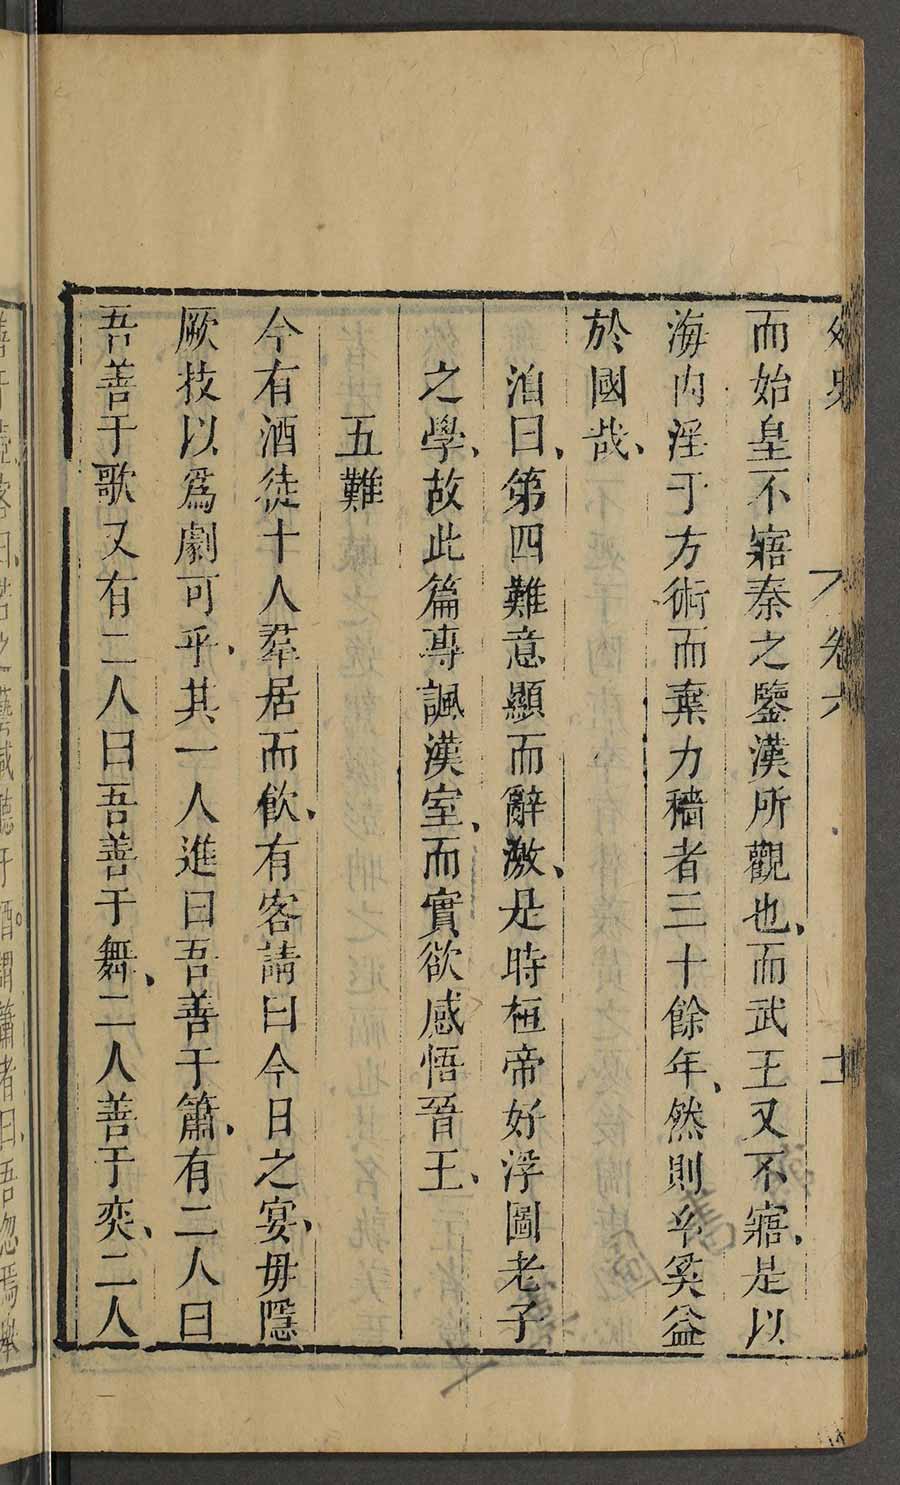 卷六
而始皇不寤秦之鑒漢所觀也、而武王又不寤、是以
海内淫于方術而棄力穡者三十餘年、然則幺奚益
於國哉、
泊曰、第四難意顯而辭激、是時桓帝好浮圖老子
之學、故此篇專諷漢室、而實欲感悟晉王、
五難
今有酒徒十人羣居而飲、有客請曰今日之宴、毋隱
厥技以爲劇可乎、其一人進曰吾善于簫、有二人曰
吾善于歌又有二人曰吾善于舞、二人善于奕、二人